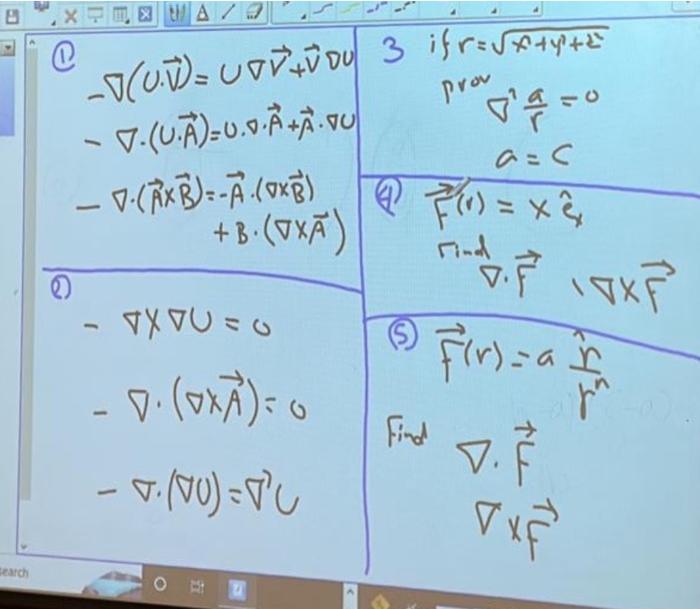 ①
- ∇(U.V⃗) = U∇V⃗ + V⃗∇U
- ∇.(U.A⃗)=U.∇.A⃗+A⃗.∇U
- ∇.(A⃗×B⃗)=-A⃗.(∇×B⃗)
+B.(∇×A⃗)
②
- ∇×∇U = 0
- ∇.(∇×A⃗)=0
- ∇.(∇U)=∇²U
3 if r=√x²+y²+z²
prov
∇² a/r = 0
a = C
④ F⃗(r) = x ê_x
Find
∇.F⃗ , ∇×F⃗
⑤ F⃗(r) = a r̂/rⁿ
Find ∇.F⃗
∇×F⃗
earch